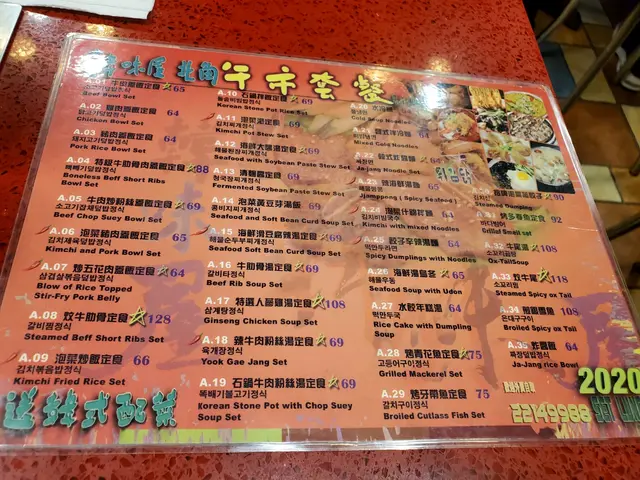 味屋 北角 午市套餐
65
소고기덮밥정식
Beef Bowl Set
A.02 雞肉蓋飯定食 64
닭고기덮밥정식
Chicken Bowl Set
A.03 豬肉蓋飯定食 64
돼지고기덮밥정식
Pork Rice Bowl Set
A.04 特級牛肋骨肉蓋飯定食 88
뚝배기덮밥정식
Boneless Beff Short Ribs
Bowl Set
A.05 牛肉炒粉絲蓋飯定食 69
소고기잡채덮밥정식
Beef Chop Suey Bowl Set
A.06 泡菜豬肉蓋飯定食 65
김치제육덮밥정식
Kimchi and Pork Bowl Set
A.07 炒五花肉蓋飯定食 64
삼겹살볶음덮밥정식
Blow of Rice Topped
Stir-Fry Pork Belly
A.08 炆牛肋骨定食 128
갈비찜정식
Steamed Beff Short Ribs Set
A.09 泡菜炒飯定食 66
김치볶음밥정식
Kimchi Fried Rice Set
A.10 石鍋拌飯定食 69
돌솥비빔밥정식
Korean Stone Pot Rice Set
A.11 泡菜湯定食 69
김치찌개정식
Kimchi Pot Stew Set
A.12 海鮮大醬湯定食 69
해물된장찌개정식
Seafood with Soybean Paste Stew Set
A.13 清麴醬定食 69
청국장찌개정식
Fermented Soybean Paste Stew Set
A.14 泡菜黃豆芽湯飯 69
콩비지찌개정식
Seafood and Soft Bean Curd Soup Set
A.15 海鮮滑豆腐辣湯定食 69
해물순두부찌개정식
Seafood Soft Bean Curd Soup Set
A.16 牛肋骨湯定食 69
갈비탕정식
Beef Rib Soup Set
A.17 特選人蔘雞湯定食 108
삼계탕정식
Ginseng Chicken Soup Set
A.18 辣牛肉湯定食 69
육개장정식
Yook Gae Jang Set
A.19 石鍋牛肉粉絲湯定食 69
뚝배기불고기정식
Korean Stone Pot with Chop Suey
Soup Set
64
Cold Soup Noodles
64
Mixed Cold Noodles
64
Ja-jang Noodle Set
69
Jjamppong ( Spicy Seafood)
64
Kimchi with mixed Noodles
餃子辛辣湯麵 64
떡만두라면
Spicy Dumplings with Noodles
A.26 海鮮湯烏冬 65
해물우동
Seafood Soup with Udon
A.27 水餃年糕湯 64
떡만두국
Rice Cake with Dumpling
Soup
A.28 烤青花魚定食 75
고등어구이정식
Grilled Mackerel Set
A.29 烤牙帶魚定食 75
갈치구이정식
Broiled Cutlass Fish Set
90
Steamed Dumplings
烤多春魚定食 92
Grilled Small smelt
Ox Tail Soup
A.33 炆牛尾 118
소꼬리찜
Steamed Spicy ox Tail
108
은대구구이
Broiled Spicy ox Tail
A.35 炸醬飯 64
짜장덮밥정식
Ja-Jang rice Bowl
送韓式配菜
2020
22149988